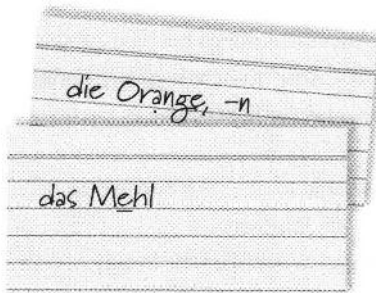 die Orange, -n
das Mehl